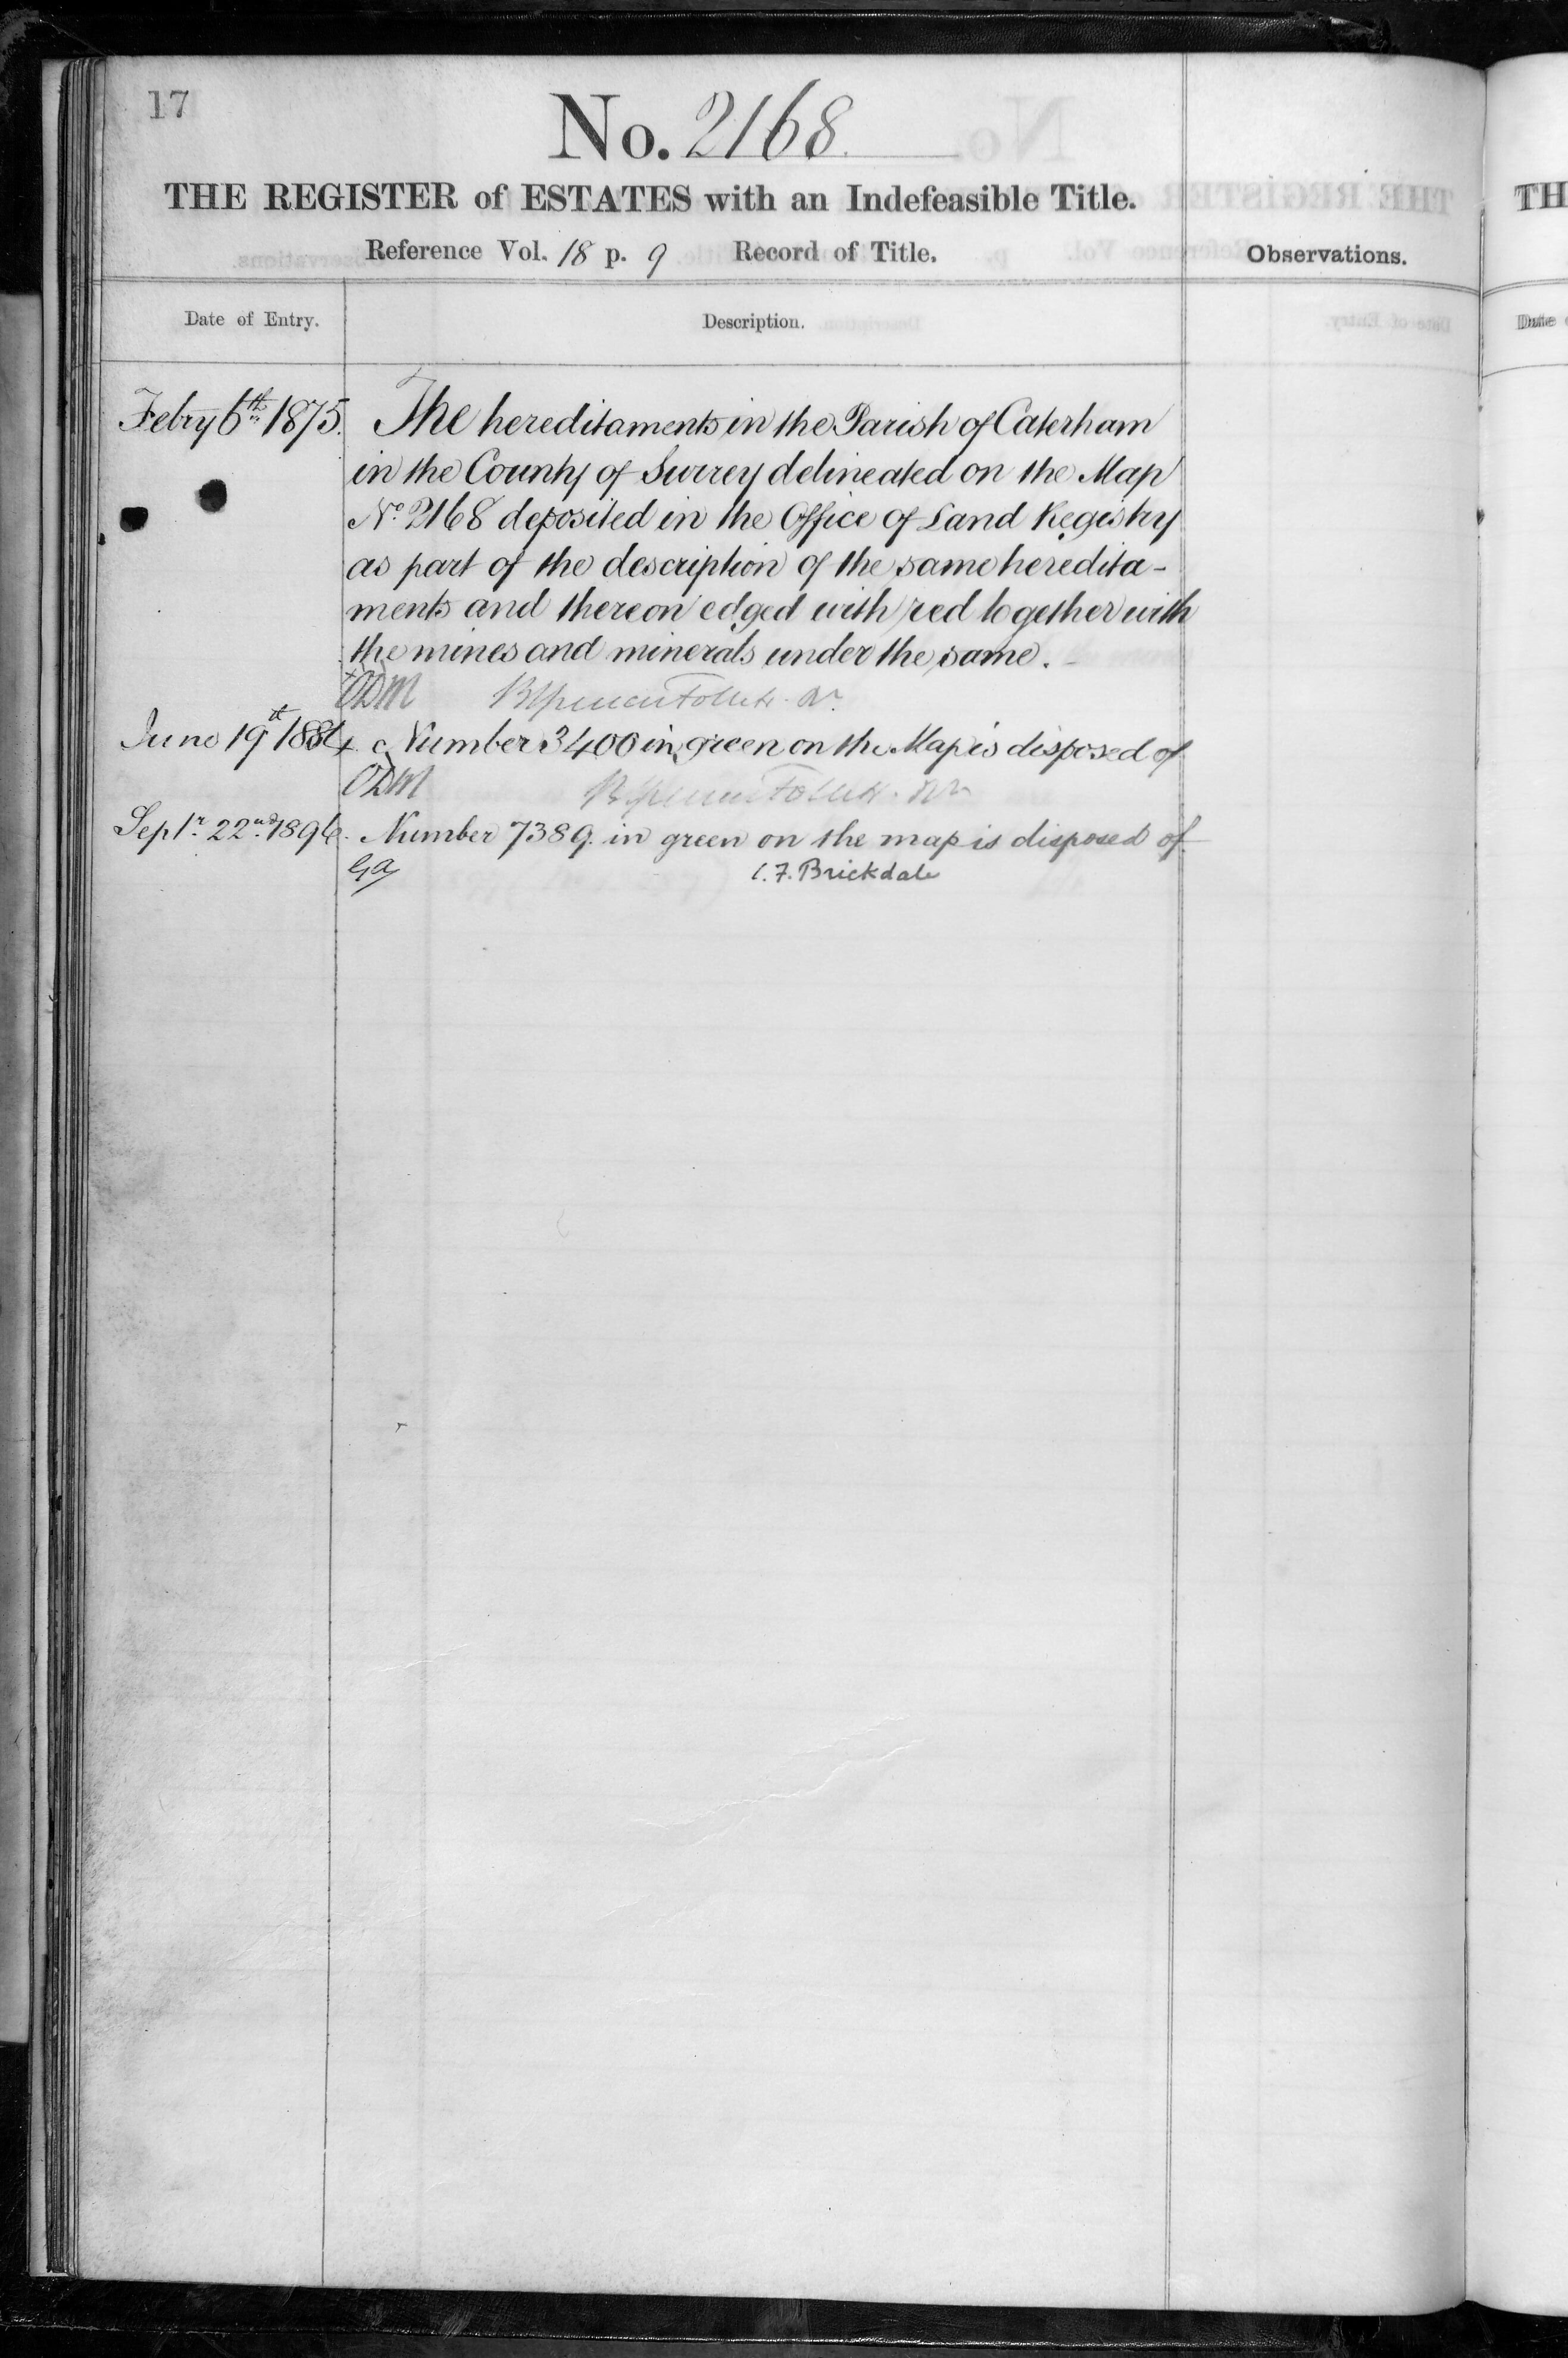 17
No. 2168.
THE REGISTER of ESTATES with an Indefeasible Title.
Reference Vol. 18 p. 9 Record of Title.
Observations.
Date of Entry.
Description.
Febry 6th 1875. The hereditaments in the Parish of Caterham
in the County of Surrey delineated on the Map
No. 2168 deposited in the Office of Land Registry
as part of the description of the same heredita-
ments and thereon edged with red together with
the mines and minerals under the same.
ODM
June 19th 1884. Number 3400 in green on the Map is disposed of
ODM
Septr. 22nd 1896. Number 7389. in green on the map is disposed of
C. F. Brickdale
TH
Date